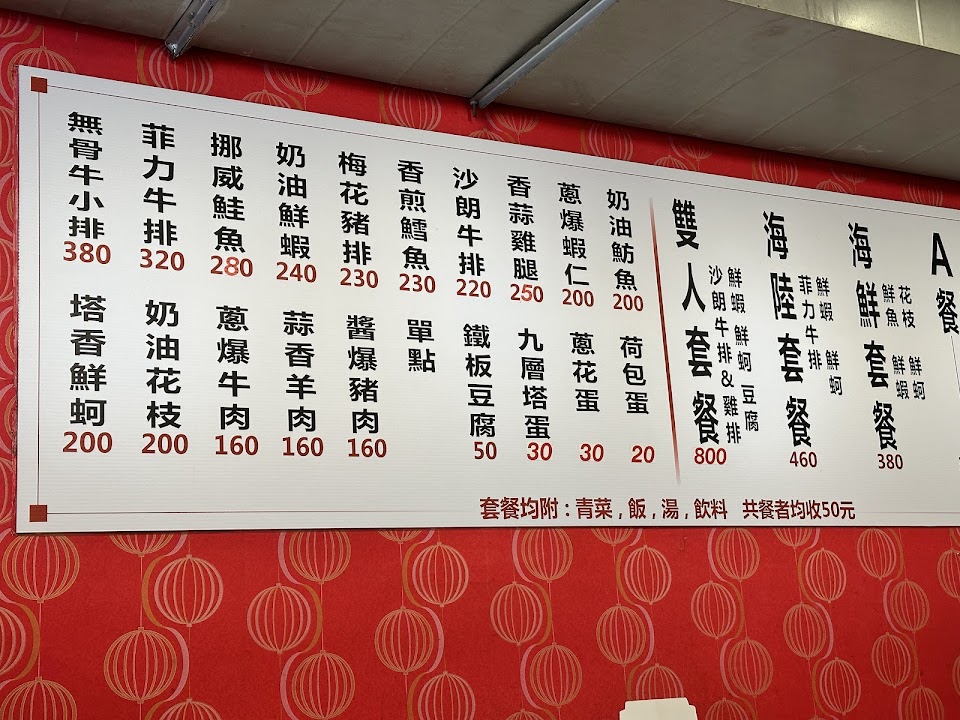 無骨牛小排
380
菲力牛排
320
挪威鮭魚
280
奶油鮮蝦
240
梅花豬排
230
香煎鱈魚
230
沙朗牛排
220
香蒜雞腿
250
蔥爆蝦仁
200
奶油魴魚
200
塔香鮮蚵
200
奶油花枝
200
蔥爆牛肉
160
蒜香羊肉
160
醬爆豬肉
160
單點
鐵板豆腐
50
九層塔蛋
30
蔥花蛋
30
荷包蛋
20
雙人套餐
鮮蝦 鮮蚵 豆腐
沙朗牛排&雞排
800
海陸套餐
鮮蝦 鮮蚵
菲力牛排
460
海鮮套餐
花枝 鮮蚵
鮮魚 鮮蝦
380
A餐
套餐均附:青菜,飯,湯,飲料 共餐者均收50元